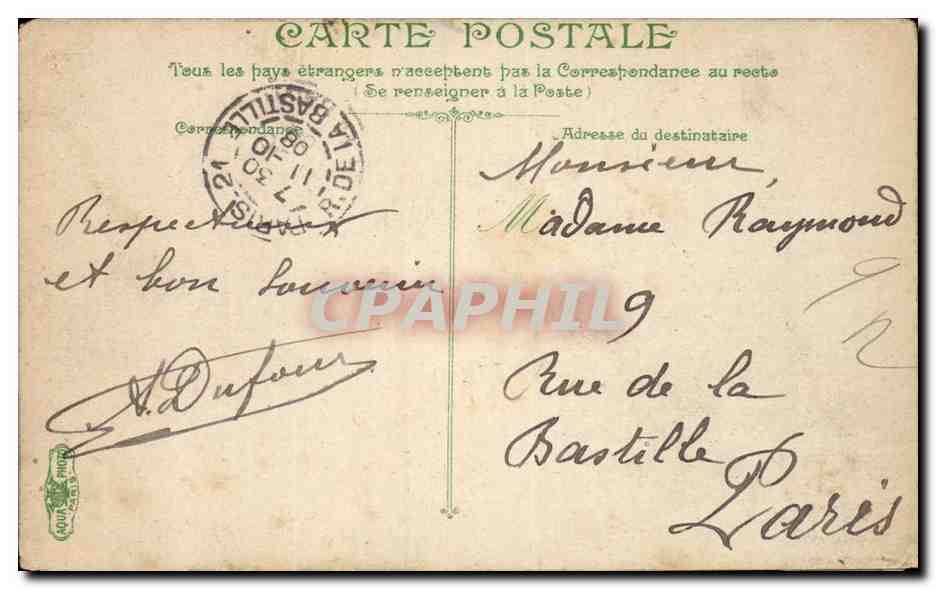 CARTE POSTALE
Tous les pays étrangers n'acceptent pas la Correspondance au recto
(Se renseigner à la Poste)
Correspondance
Adresse du destinataire
PARIS 21 R. DE LA BASTILLE
7 30
11 - 10
08
Respectueux
et bon souvenir
A. Dufour
Monsieur,
Madame Raymond
9
Rue de la
Bastille
Paris
AQUA PHOTO
PARIS
CPAPHIL